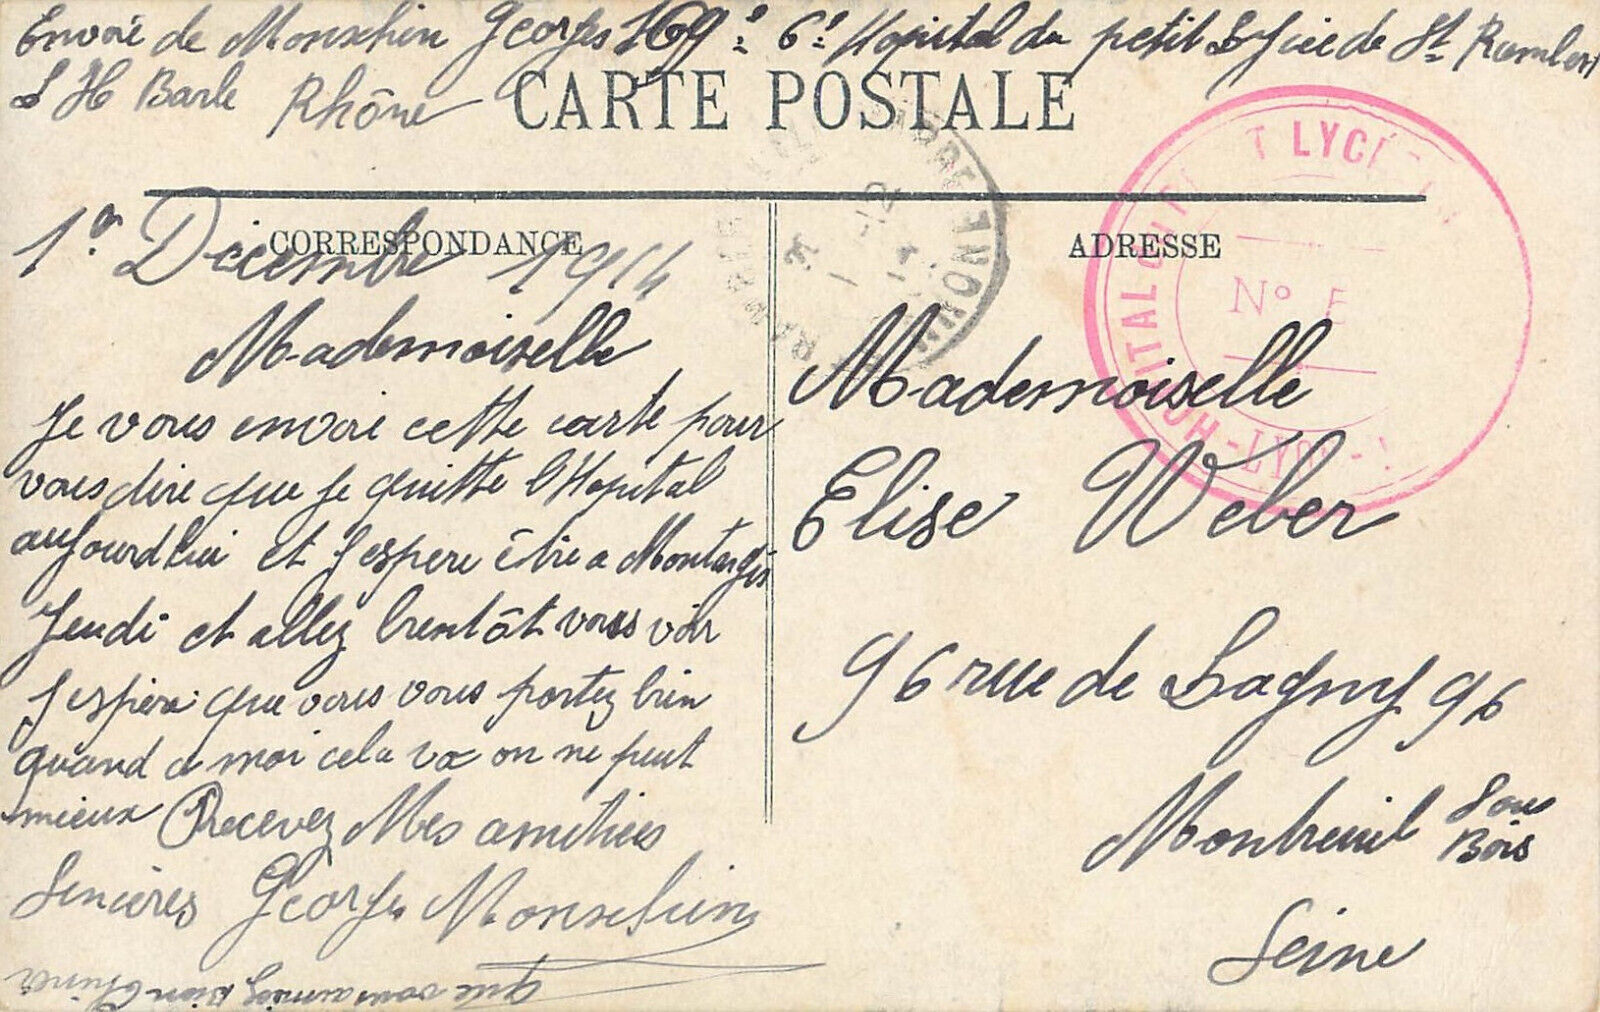 Envoie de Monschin Georges 169e 6e Hopital du petit Lycée de St Rambert
L'H Barle Rhône
CARTE POSTALE
CORRESPONDANCE
ADRESSE
1er Décembre 1914
Mademoiselle
Je vous envoie cette carte pour
vous dire que je quitte l'Hopital
aujourdhui et j'espere être a Montargis
Jeudi et allez bientôt vous voir
J'espère que vous vous portez bien
quand a moi cela va on ne peut
mieux Recevez Mes amitiées
Sincères Georges Monschin
Mademoiselle
Elise Weber
96 rue de Lagny 96
Montreuil Sous
Bois
Seine
HÔPITAL LYCÉE
No
LYON
RHONE